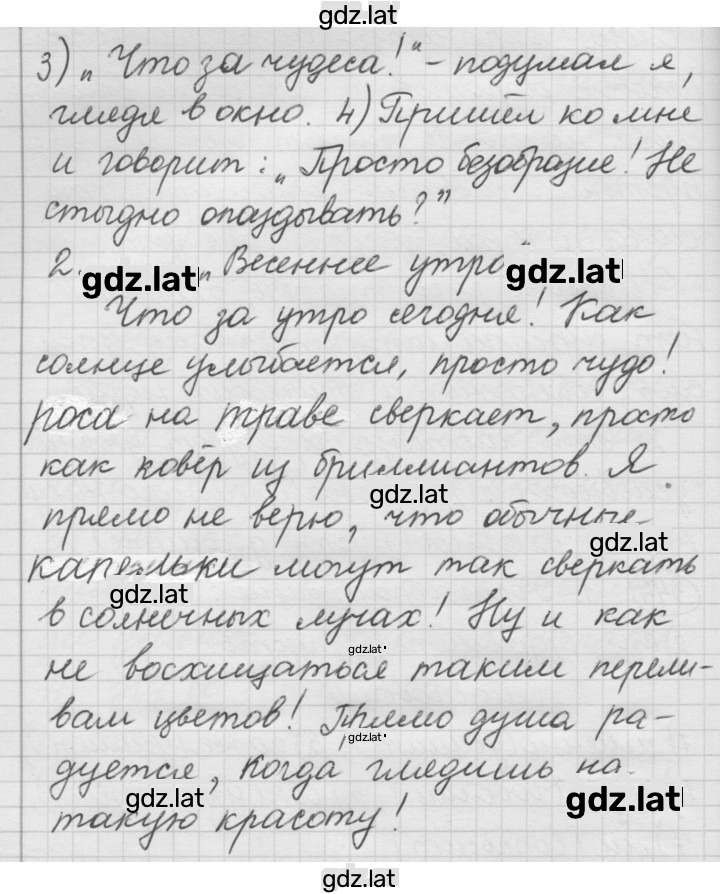 gdz.lat
3) „Что за чудеса!" - подумал я,
глядя в окно. 4) Пришёл ко мне
и говорит: „Просто безобразие! Не
стыдно опаздывать?"
2. gdz.lat „Весеннее утро" gdz.lat
Что за утро сегодня! Как
солнце улыбается, просто чудо!
роса на траве сверкает, просто
как ковёр из бриллиантов. Я
gdz.lat
прямо не верю, что обычные
gdz.lat
капельки могут так сверкать
gdz.lat
в солнечных лучах! Ну и как
gdz.lat
не восхищаться таким перели-
вам цветов! Прямо душа ра-
gdz.lat
дуется, когда глядишь на
gdz.lat gdz.lat
такую красоту!
gdz.lat